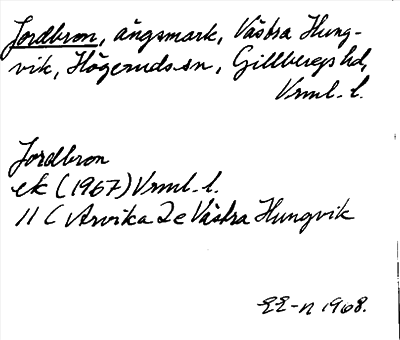 Jordbron, ängsmark, Västra Hung-
vik, Högeruds sn, Gillbergs hd,
Vrml. l.
Jordbron
ek (1967) Vrml. l.
11 C Arvika 2 e Västra Hungvik
1968.